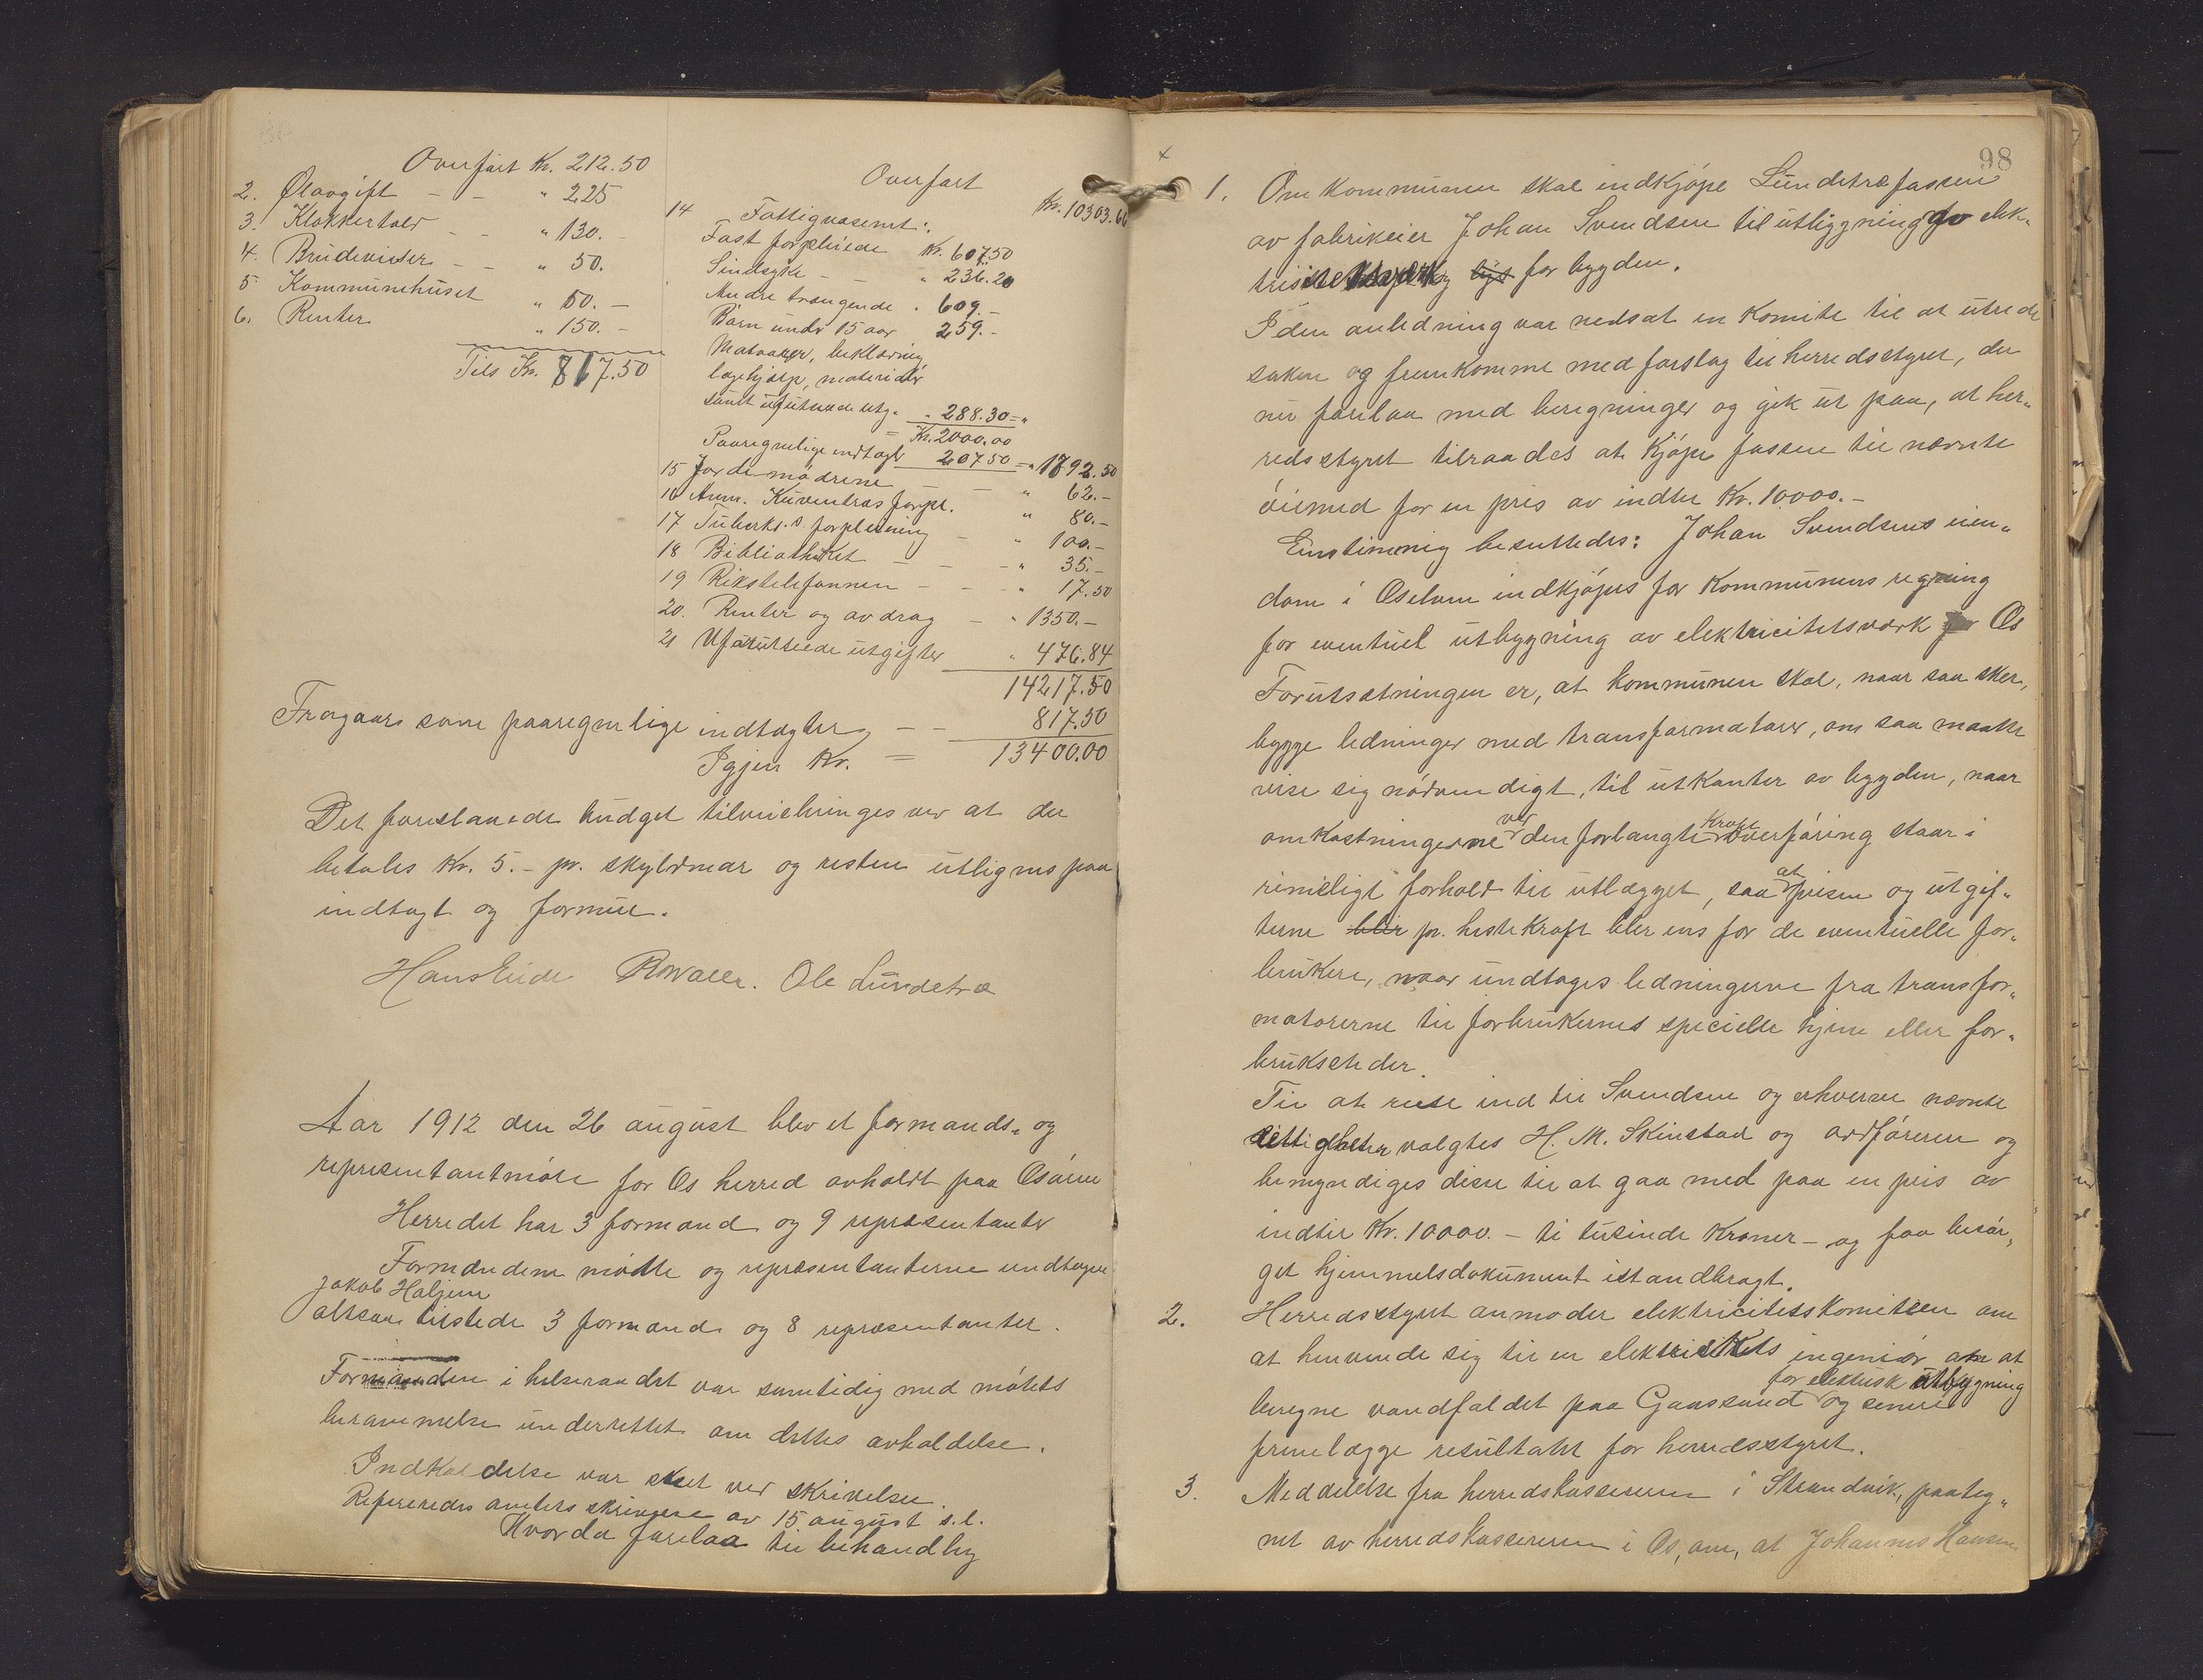 Overført Kr. 212.50
2. Ølavgift - - " 225
3. Klokkertold - - " 130.-
4. Brudevielser - - " 50.
5 Kommunehuset " 50.-
6. Renter " 150.-
Tils Kr. 817.50
Overført Kr. 10303.66
14 Fattigvæsenet:
Fast forpleiede Kr. 607.50
Sindsyke - " 236.20
Andre trængende " 609.-
Børn under 15 aar 259.-
Matvarer, beklædning
lægehjælp, materialer
samt uforutseede utg. " 288.30 = "
= Kr. 2000.00
Paaregnelige indtægter 207.50 = " 1792.50
15 Jordemødrene - - " 62.-
16 Anna Kuventræs forpl. " 80.-
17 Tuberkl.s. forpleining - " 100.-
18 Bibliotheket - - - " 35.-
19 Rikstelefonnen - - - " 17.50
20. Renter og avdrag - " 1350.-
21 Uforutseede utgifter " 476.84
14217.50
Fragaar som paaregnelige indtægter - - 817.50
Igjen Kr. = 13400.00
Det foreslaaede budget tilveiebringes ved at der
betales Kr. 5.- pr. skyldmar og resten utlignes paa
indtægt og formue.
Hans Eide Ole Lundetræ
Aar 1912 den 26 august blev et formands- og
representantmøte for Os herred avholdt paa Osøren
Herredet har 3 formænd og 9 repræsentanter
Formændene møtte og repræsentanterne undtagen
Jakob Haljem
altsaa tilstede 3 formænd og 8 repræsentanter.
Formanden i helseraadet var samtidig med møtets
berammelse underrettet om dettes avholdelse.
Indkaldelse var skeet ved skrivelse.
Refereredes amtets skrivelse av 15 august d.å.
Hvorda forelaa til behandling
98
1. Om kommunen skal indkjøpe Lundetræfossen
av fabrikeier Johan Svendsen til utbygning for elek-
trisk for bygden.
I den anledning var nedsat en komite til at utrede
saken og fremkomme med forslag til herredsstyret, der
nu forelaa med beregninger og gik ut paa, at her-
redsstyret tilraades at kjøpe fossen til nævnte
øiemed for en pris av indtil Kr. 10000.-
Enstimmig besluttedes: Johan Svendsens eien-
dom i Oselven indkjøpes for kommunens regning
for eventuel utbygning av elektricitetsværk for Os
Forutsætningen er, at kommunen skal, naar saa sker,
bygge ledninger med transformatorer, om saa maatte
vise sig nødvendigt, til utkanter av bygden, naar
omkostningerne ved den forlangte Kraftoverføring staar i
rimeligt forhold til utlægget, saa at prisen og utgif-
terne blir pr. hestekraft blir ens for de eventuelle for-
brukere, naar undtages ledningerne fra transfor-
matorerne til forbrukernes specielle hjem eller for-
bruksteder.
Til at reise ind til Svendsen og erhverve nævnte
rettigheter valgtes H. M. Skinstad og ordføreren og
bemyndiges disse til at gaa med paa en pris av
indtil Kr. 10000.- ti tusinde Kroner - og faa besør-
get hjemmelsdokument istandbragt.
2. Herredsstyret anmoder elektricitetskomiteen om
at henvende sig til en elektricitets ingeniør om at
beregne vandfaldet paa Gaassand for elektrisk utbygning og senere
fremlægge resultatet for herredsstyret.
3. Meddelelse fra herredskassereren i Strandvik, paateg-
net av herredskassereren i Os, om, at Johannes Hansen